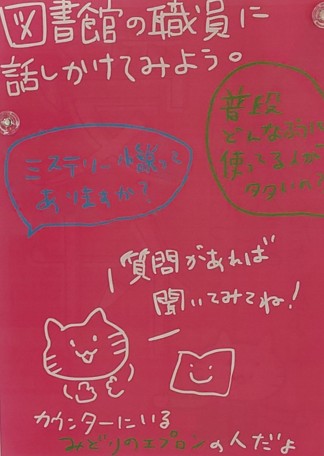 図書館の職員に
話しかけてみよう。
ミステリー小説って
ありますか?
普段
どんな
使っている
質問があれば
聞いてみてね!
カウンターにいる
みどりのエプロンの人だよ